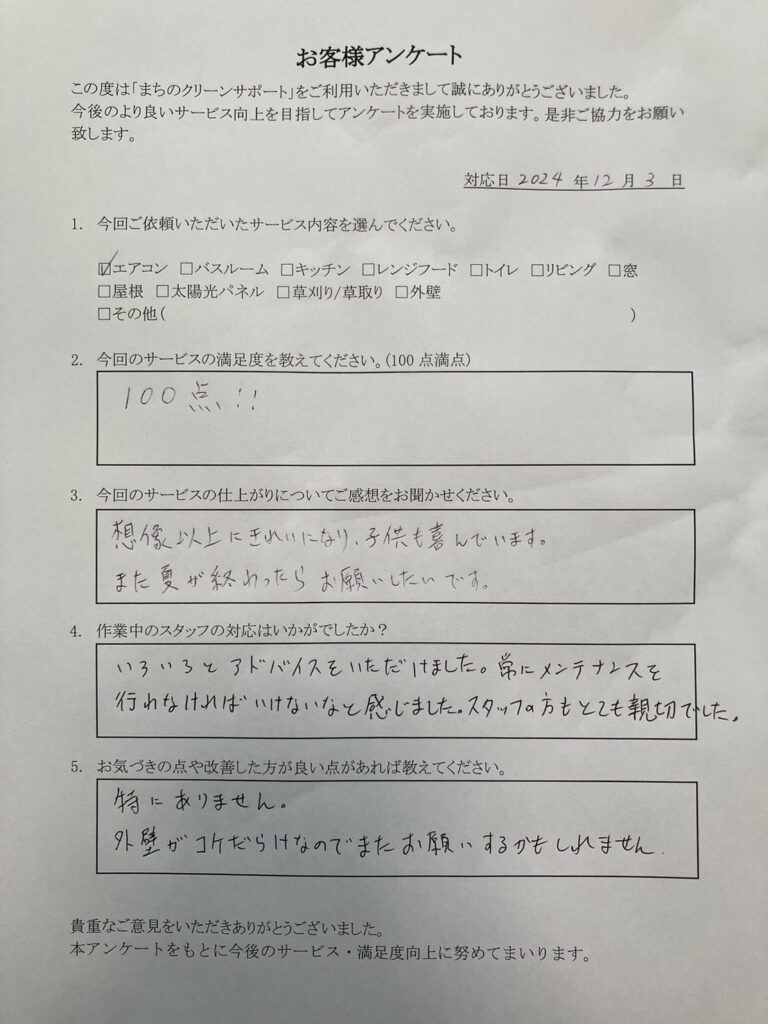 お客様アンケート
この度は「まちのクリーンサポート」をご利用いただきまして誠にありがとうございました。
今後のより良いサービス向上を目指してアンケートを実施しております。是非ご協力をお願い
致します。
対応日 2024 年 12 月 3 日
1. 今回ご依頼いただいたサービス内容を選んでください。
☑エアコン □バスルーム □キッチン □レンジフード □トイレ □リビング □窓
□屋根 □太陽光パネル □草刈り/草取り □外壁
□その他( )
2. 今回のサービスの満足度を教えてください。(100 点満点)
100点!!
3. 今回のサービスの仕上がりについてご感想をお聞かせください。
想像以上にきれいになり、子供も喜んでいます。
また夏が終わったらお願いしたいです。
4. 作業中のスタッフの対応はいかがでしたか？
いろいろとアドバイスをいただけました。常にメンテナンスを
行わなければいけないなと感じました。スタッフの方もとても親切でした。
5. お気づきの点や改善した方が良い点があれば教えてください。
特にありません。
外壁がコケだらけなのでまたお願いするかもしれません
貴重なご意見をいただきありがとうございました。
本アンケートをもとに今後のサービス・満足度向上に努めてまいります。